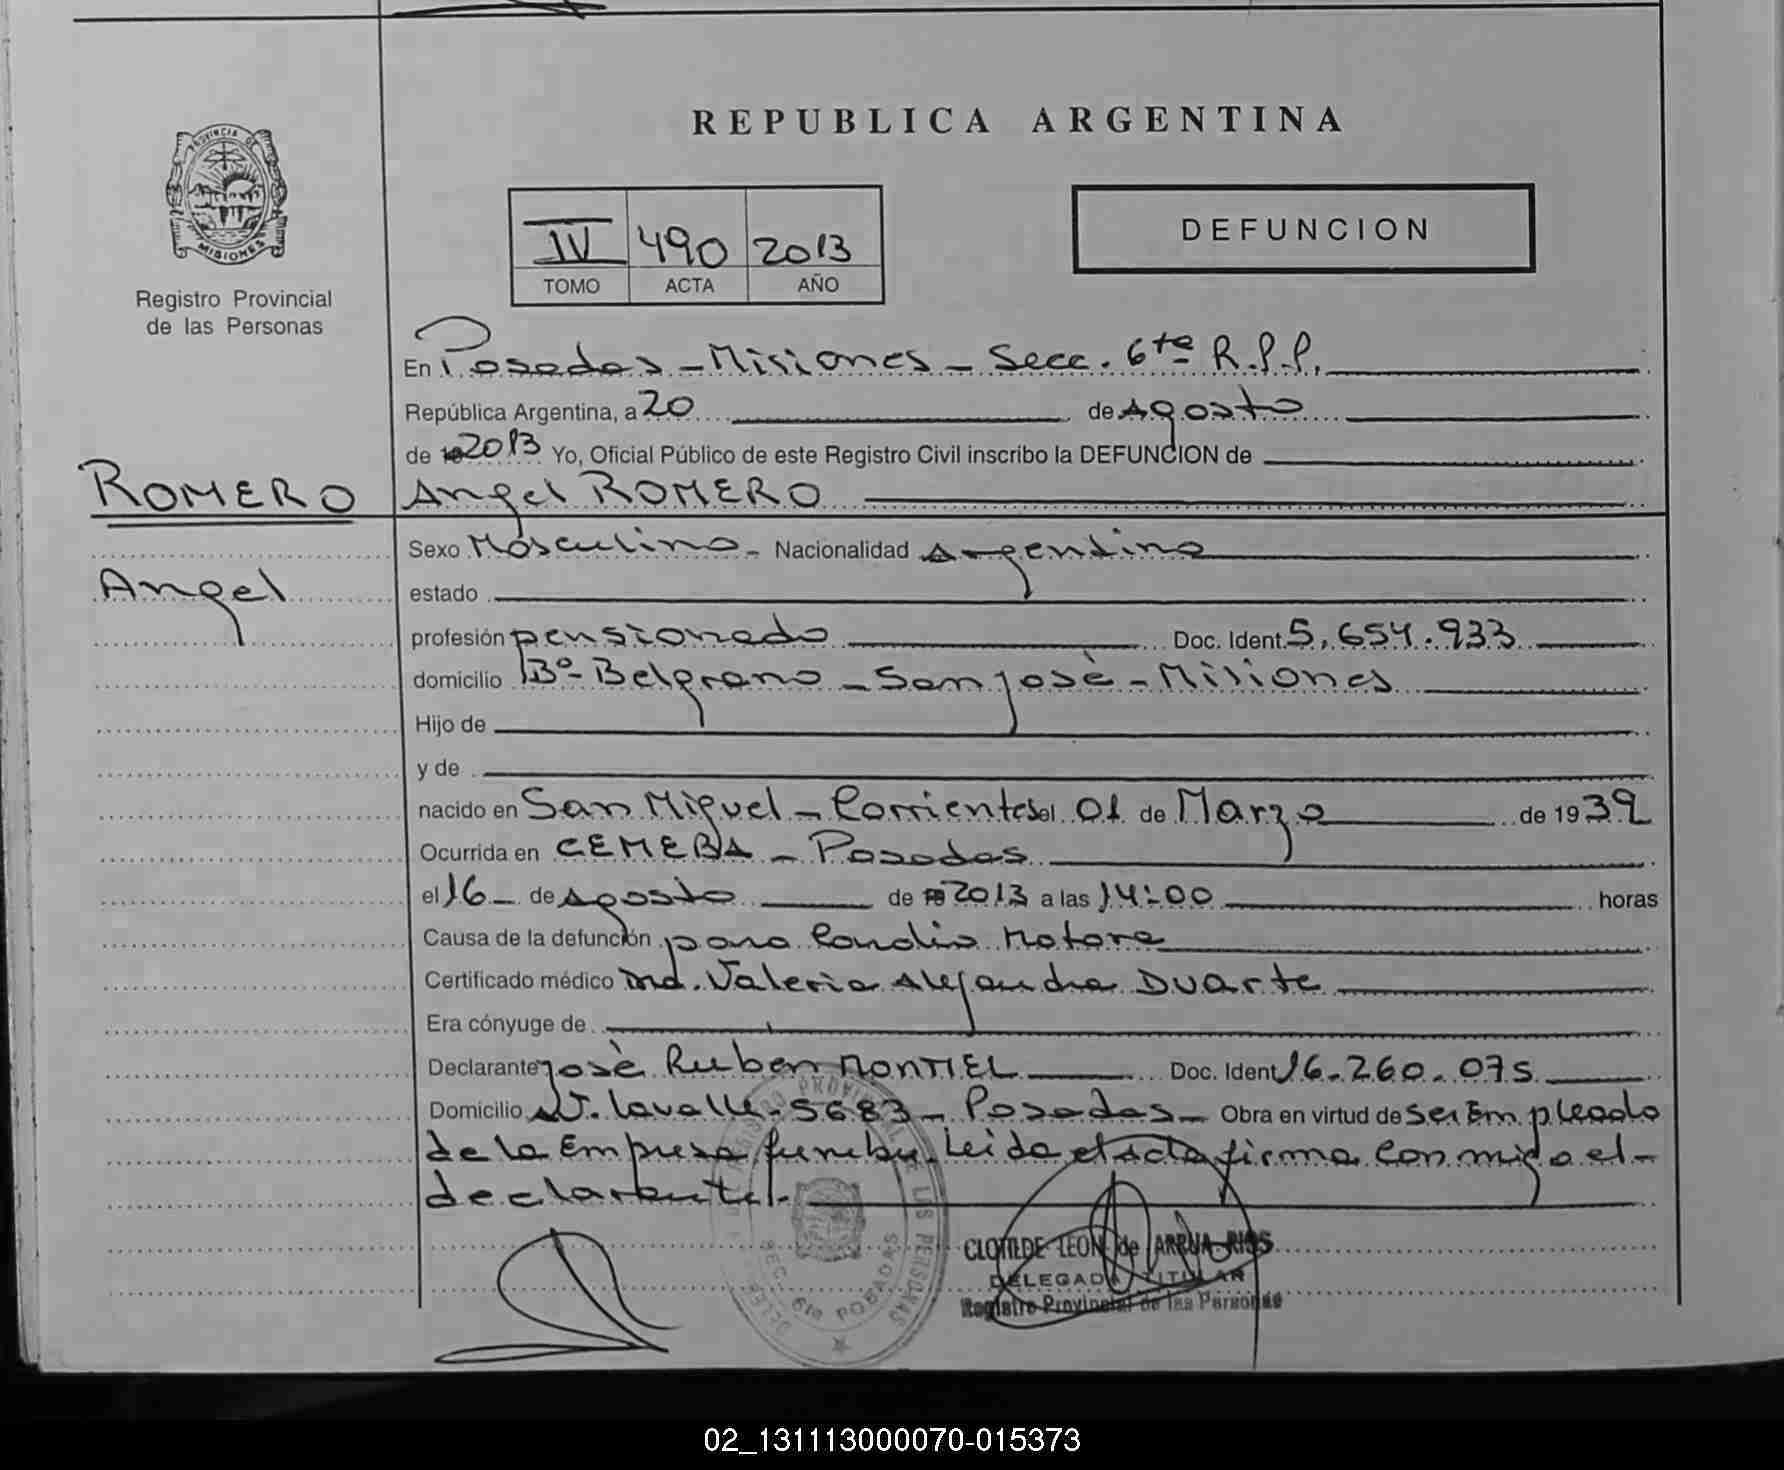 PROVINCIA DE
MISIONES
Registro Provincial
de las Personas
REPUBLICA ARGENTINA
IV 490 2013
TOMO ACTA AÑO
DEFUNCION
En Posadas - Misiones - Secc. 6ta R.P.P.
República Argentina, a 20 de Agosto
de 2013 Yo, Oficial Público de este Registro Civil inscribo la DEFUNCION de
ROMERO Angel ROMERO
Sexo Masculino - Nacionalidad Argentina
Angel
estado
profesión pensionado Doc. Ident. 5.654.933
domicilio Bº- Belgrano - San josè - Misiones
Hijo de
y de
nacido en San Miguel - Corrientes el 01 de Marzo de 1939
Ocurrida en CEMEBA - Posadas
el 16 - de Agosto de 2013 a las 14:00 horas
Causa de la defunción paro Cardio Motora
Certificado médico Md. Valeria Alejandra Duarte
Era cónyuge de
Declarante josè Ruben MONTIEL Doc. Ident 16.260.075
Domicilio Av. Lavalle - 5683 - Posadas - Obra en virtud de ser Empleado
de la Empresa funebre. Leida el acta firma Con migo el -
declarante -
SEC. 6ta POSADAS
CLOTILDE LEON de ARRUA RIOS
DELEGADA TITULAR
Registro Provincial de las Personas
02_131113000070-015373